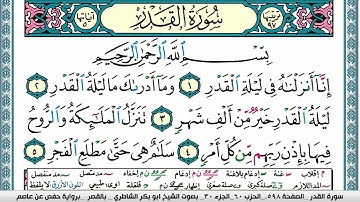 ترتيبها ٩٧
سُورَةُ الْقَدْرِ
آياتها ٥
بِسْمِ اللَّهِ الرَّحْمَٰنِ الرَّحِيمِ
إِنَّا أَنزَلْنَٰهُ فِي لَيْلَةِ الْقَدْرِ ١ وَمَا أَدْرَىٰكَ مَا لَيْلَةُ الْقَدْرِ ٢
لَيْلَةُ الْقَدْرِ خَيْرٌ مِّنْ أَلْفِ شَهْرٍ ٣ تَنَزَّلُ الْمَلَٰٓئِكَةُ وَالرُّوحُ
فِيهَا بِإِذْنِ رَبِّهِم مِّن كُلِّ أَمْرٍ ٤ سَلَٰمٌ هِيَ حَتَّىٰ مَطْلَعِ الْفَجْرِ
سورة القدر الصفحة ٥٩٨ الحزب ٦٠ الجزء ٣٠ بصوت الشيخ ابو بكر الشاطري بالقصر برواية حفص عن عاصم